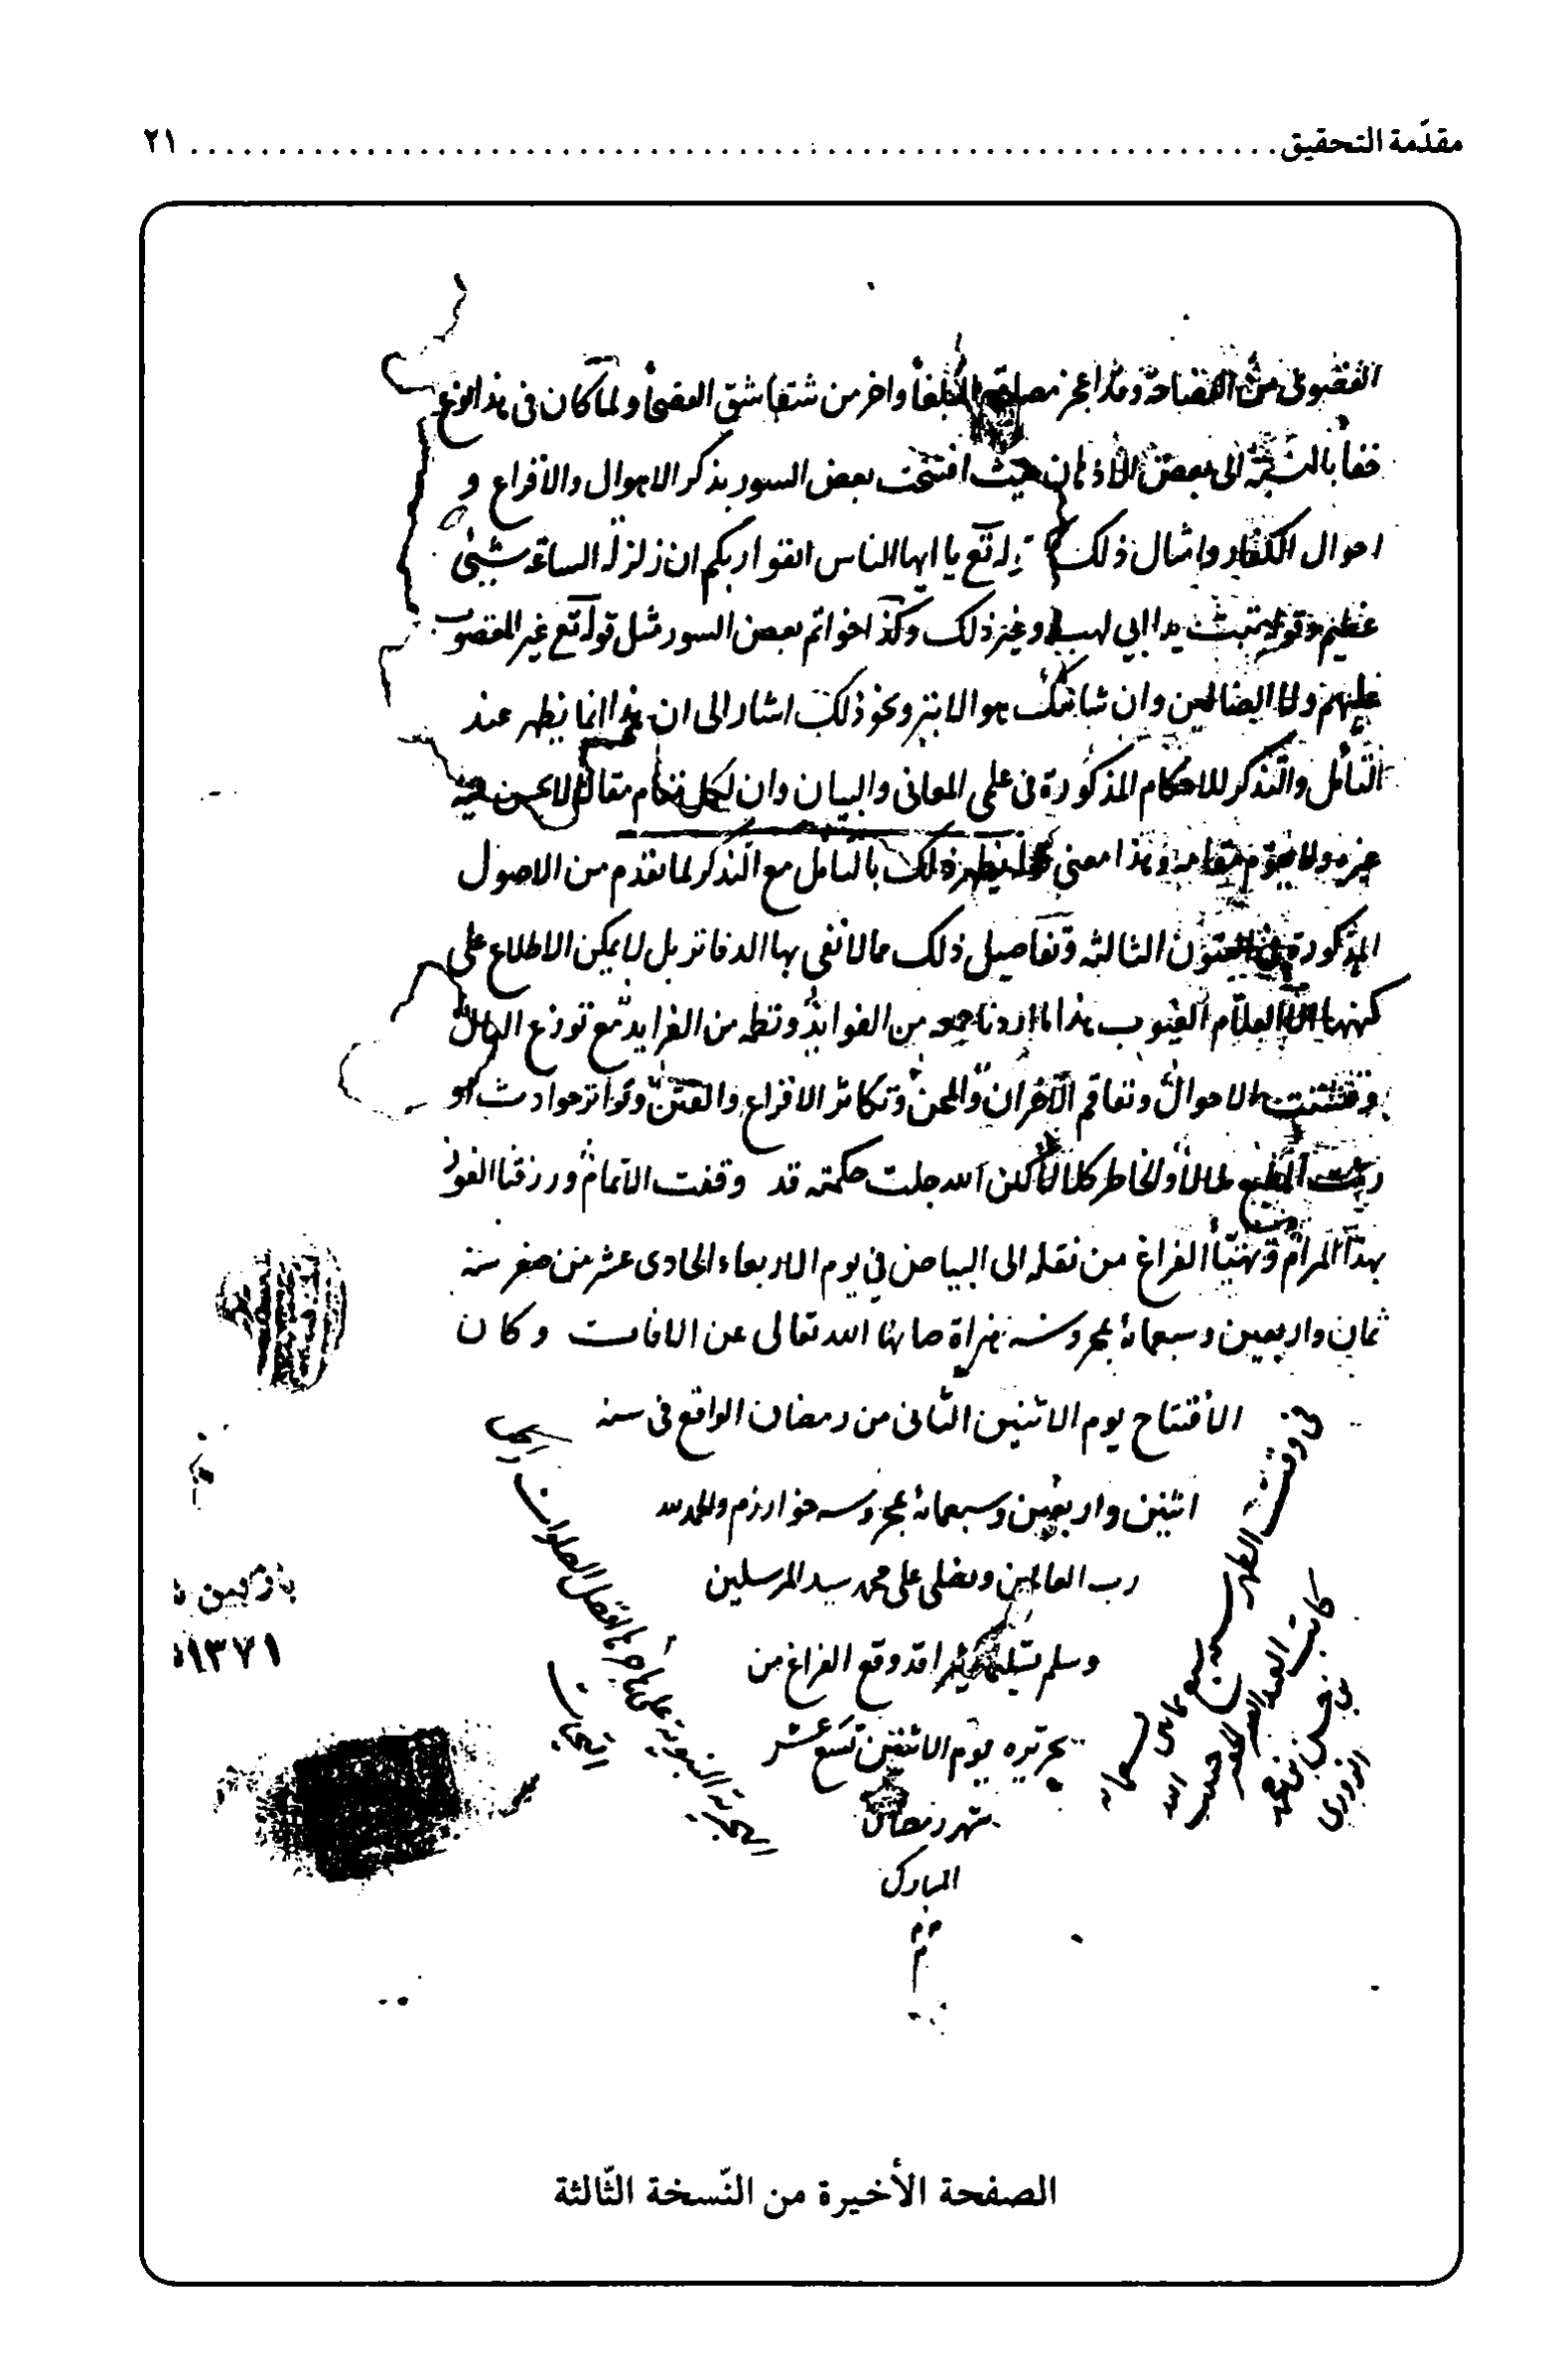 مقدّمة التحقيق ........ ٢١
القصوى من الفصاحة وقد اعجز مصاقع البلغا واخرس شقاشق الفصحا ولما كان فى هذا نوع
خفا بالنسبة الى بعض الاذهان حيث افتتحت بعض السور بذكر الاهوال والافزاع و
احوال الكفار وامثال ذلك كقوله تع يا ايها الناس اتقوا ربكم ان زلزلة الساعة شيئ
عظيم وقوله تبت يدا ابي لهب وغير ذلك وكذا خواتم بعض السور مثل قوله تع غير المغضوب
عليهم ولا الضالين وان شانئك هو الابتر ونحو ذلك اشار الى ان هذا انما يظهر عند
التأمل والتذكر للاحكام المذكورة فى علمى المعانى والبيان وان لكل مقام مقالا لا يحسن فيه
غيره ولا يقوم مقامه وهذا معنى قوله يظهر ذلك بالتامل مع التذكر لما تقدم من الاصول
المذكورة فى الفنون الثالثه وتفاصيل ذلك مما لا تفى بها الدفاتر بل لا يمكن الاطلاع على
كنهها الا لعلام الغيوب هذا ما اردنا جمعه من الفوايد ونظمه من الفرايد مع توزع البال
وتشتت الاحوال وتفاقم الاحزان والمحن وتكاثر الافزاع والفتن وتواتر حوادث او
رثت الطبع ملالا والخاطر كلالا لكن الله جلت حكمته قد وفقت الاتمام ورزقنا الفوز
بهذا المرام وتهيأ الفراغ من نقله الى البياض فى يوم الاربعاء الحادى عشر من صفر سنه
ثمان واربعين وسبعمائة بمحروسة هراة صانها الله تعالى عن الافات وكان
الافتتاح يوم الاثنين الثانى من رمضان الواقع فى سنه
اثنين واربعين وسبعمائة بمحروسه خوارزم والحمد لله
رب العالمين ونصلى على محمد سيد المرسلين
وسلم تسليما كثيرا قد وقع الفراغ من
تحريره يوم الاثنين تسع عشر
شهر رمضان
المبارك
فى وقت الظهر
كاتب العبد
الهجرية النبوية
افضل الصلوات
١٣٧١
الصفحة الأخيرة من النّسخة الثّالثة